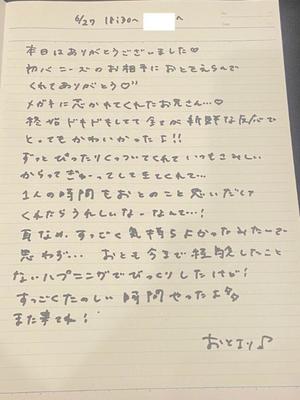 6/27 18:30〜 へ
本日はありがとうございました♡
初バニーズのお相手におとえらんで
くれてありがとう♡
メガネに惹かれてくれたお兄さん…♡
終始ドキドキしてて全てが新鮮な反応で
とってもかわいかったよ!!
ずっとぴったりくっついてくれていつもさみしい
からってぎゅーってしててくれて…
1人の時間もおとのこと思いだして
くれたらうれしいなーなんて…!
すっごく気持ちよかったみたいで
思わず… おとも今まで経験したこと
ないハプニングでびっくりしたけど!
すっごくたのしい時間やったよ
また来てね!
おとより♪